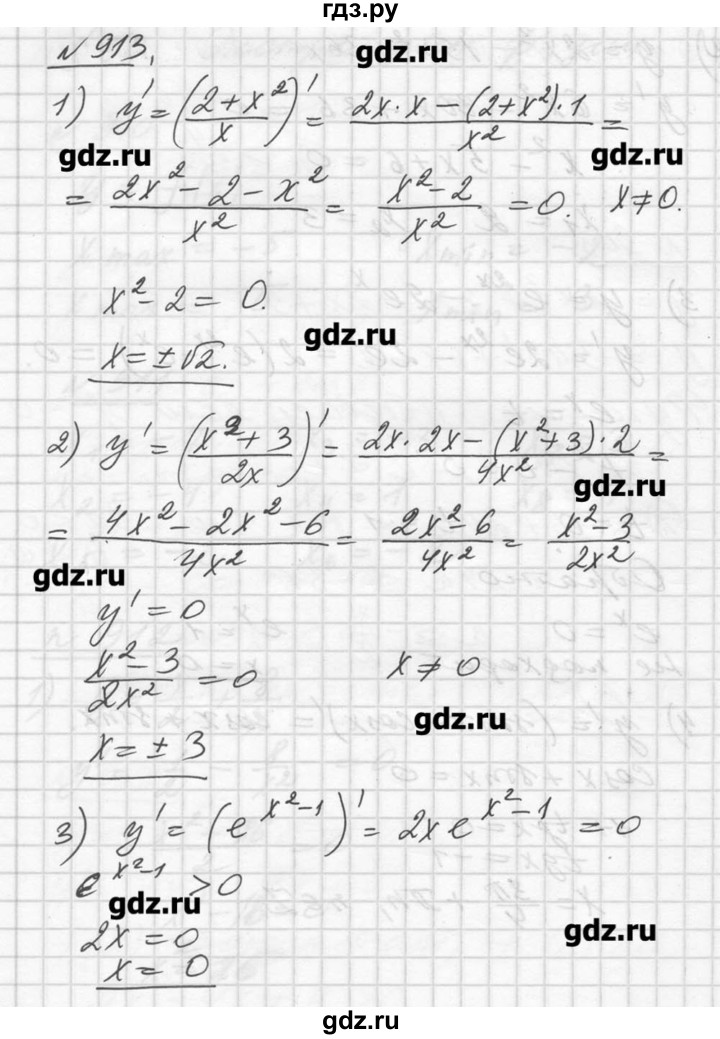 гдз.ру
№ 913.
gdz.ru
1) y' = ((2+x²)/x)' = (2x·x − (2+x²)·1)/x² =
gdz.ru gdz.ru
= (2x² − 2 − x²)/x² = (x² − 2)/x² = 0. x ≠ 0.
x² − 2 = 0.
gdz.ru
x = ±√2.
2) y' = ((x² + 3)/2x)' = (2x·2x − (x² + 3)·2)/4x² =
gdz.ru
= (4x² − 2x² − 6)/4x² = (2x² − 6)/4x² = (x² − 3)/2x²
gdz.ru
y' = 0
(x² − 3)/2x² = 0 x ≠ 0
gdz.ru
x = ± 3
3) y' = (e^(x²−1))' = 2x e^(x²−1) = 0
e^(x²−1) > 0
gdz.ru
2x = 0
gdz.ru
x = 0
gdz.ru